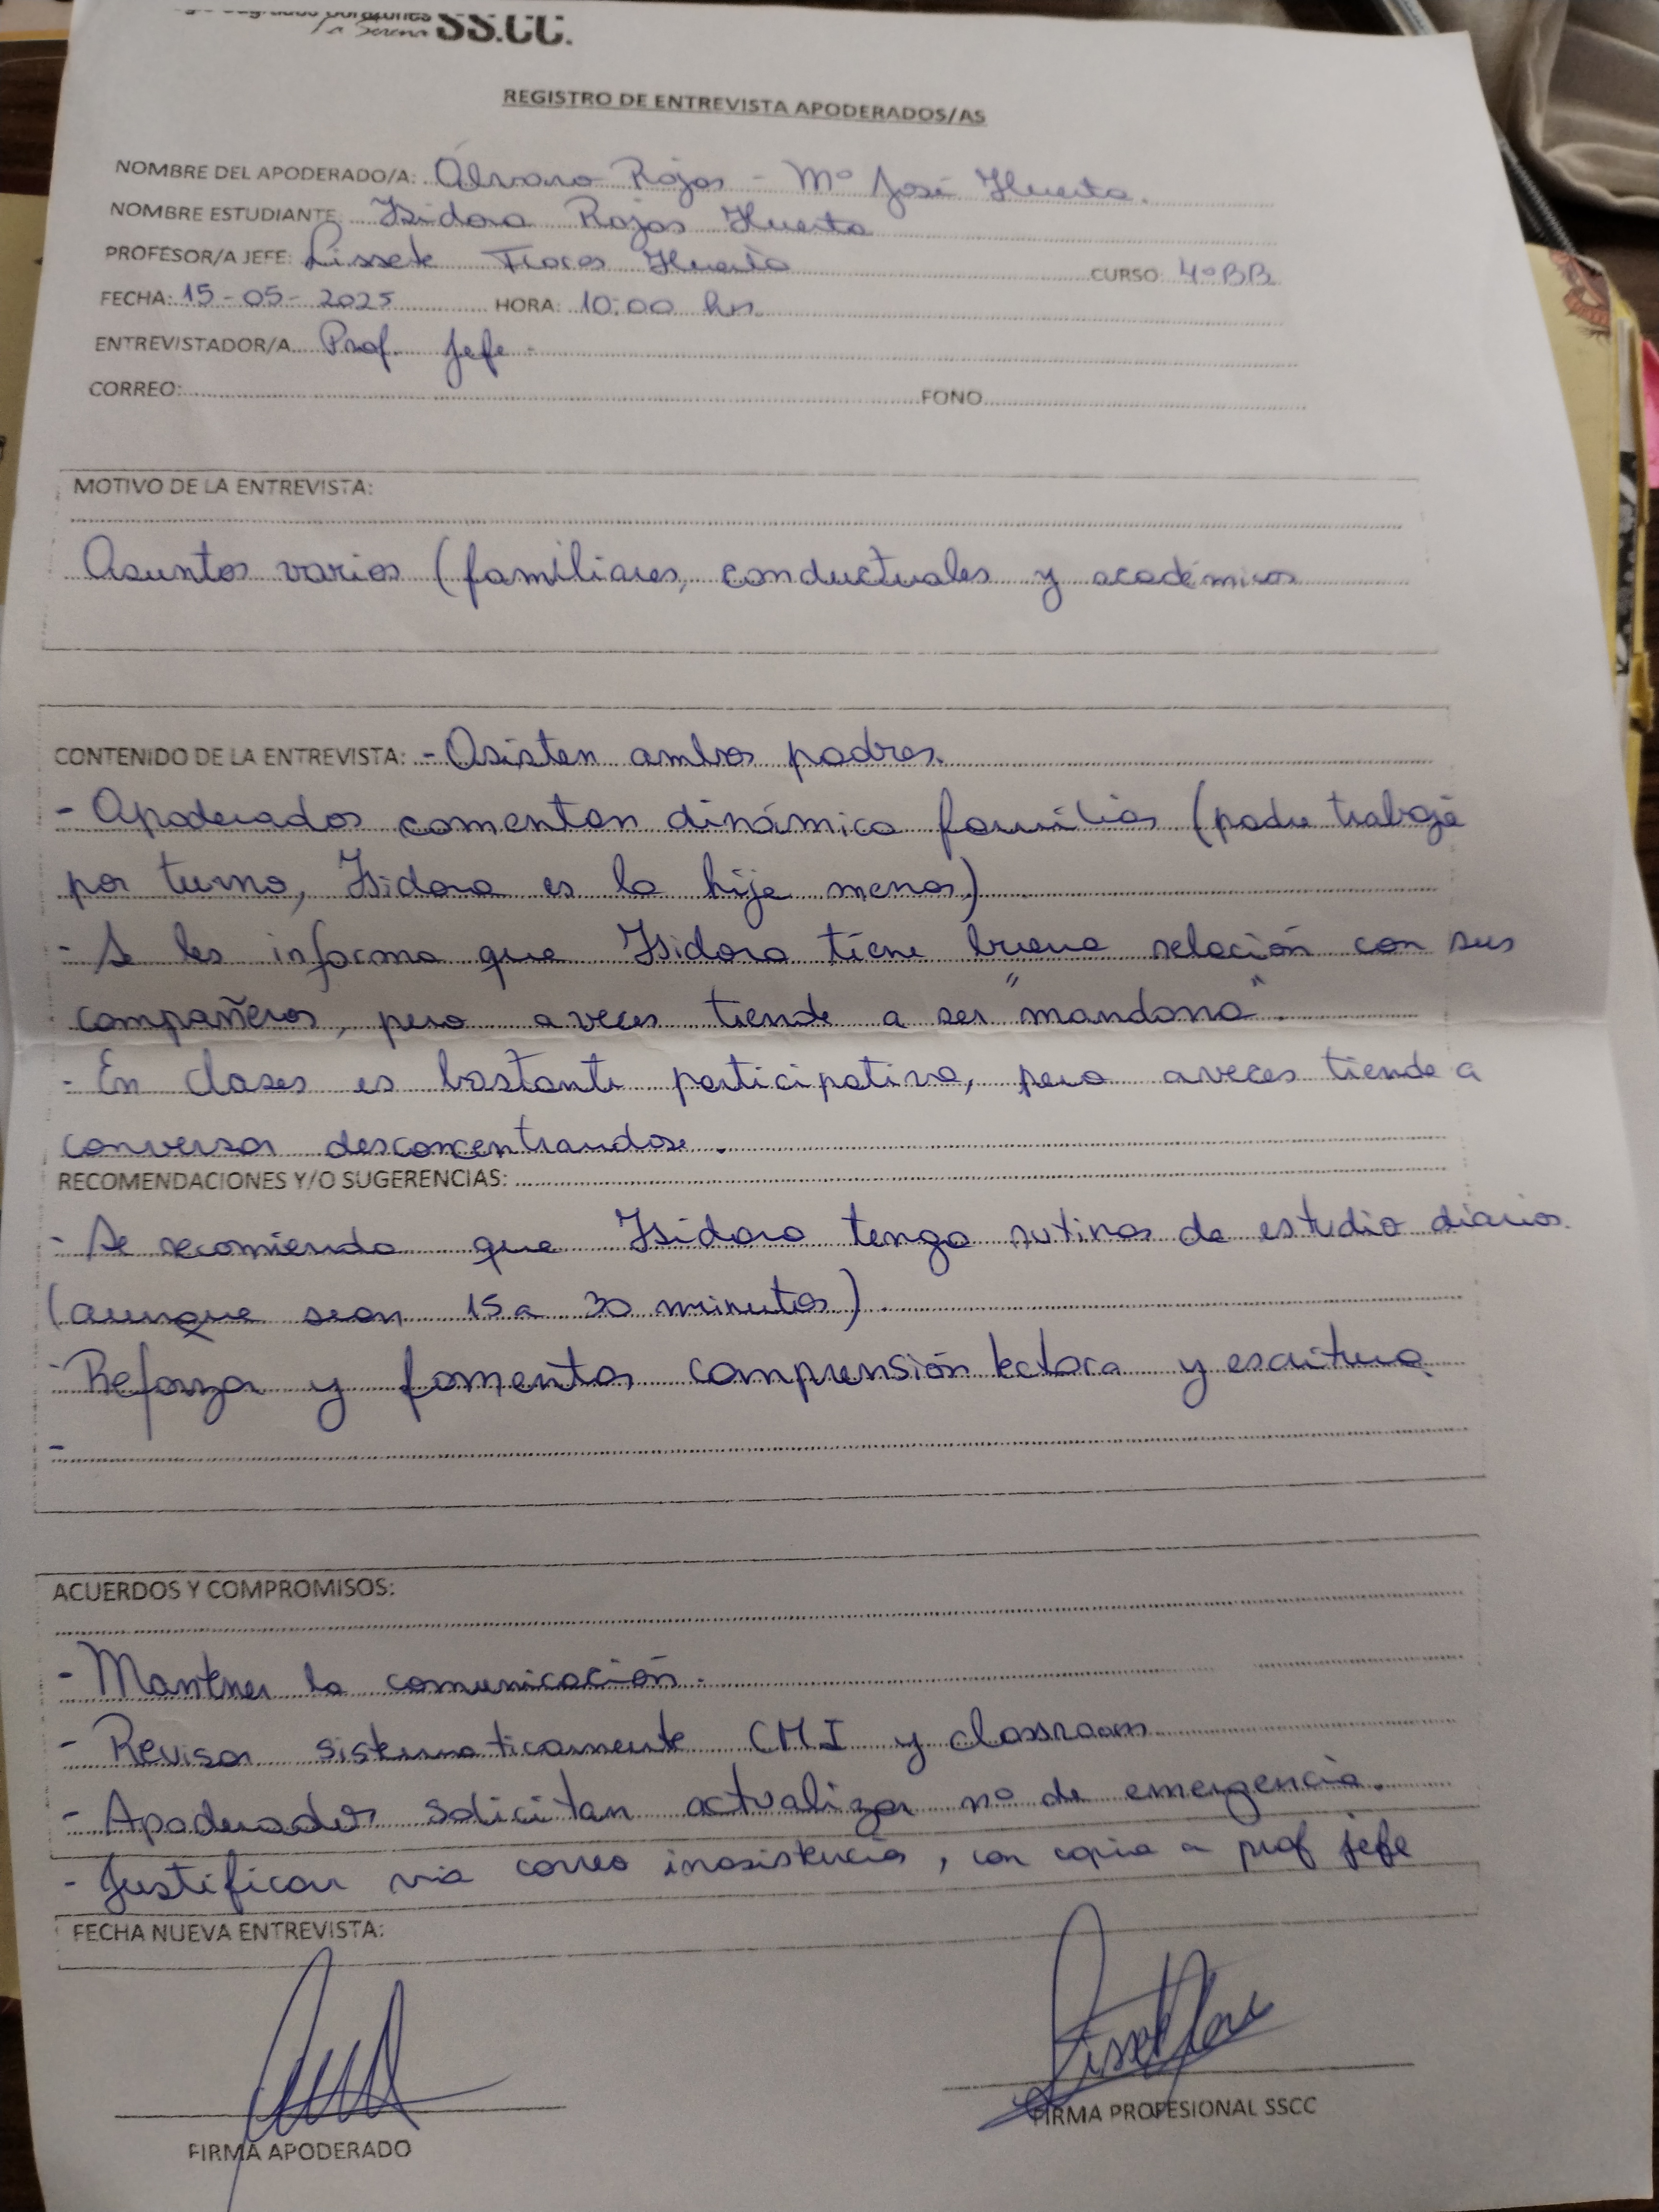 Sagrados Corazones
La Serena SS.CC.
REGISTRO DE ENTREVISTA APODERADOS/AS
NOMBRE DEL APODERADO/A: Álvaro Rojas - Mº José Huerta.
NOMBRE ESTUDIANTE Isidora Rojas Huerta
PROFESOR/A JEFE: Lissete Huerta CURSO 4ºBB
FECHA: 15-05-2025 HORA: 10:00 hrs.
ENTREVISTADOR/A Prof. Jefe.
CORREO: FONO
MOTIVO DE LA ENTREVISTA:
Asuntos varios (familiares, conductuales y académicos
CONTENIDO DE LA ENTREVISTA: - Asisten ambos padres.
- Apoderados comentan dinámica familiar (padre trabaja
por turno, Isidora es la hija menor)
- Se les informa que Isidora tiene buena relación con sus
compañeros, pero a veces tiende a ser "mandona".
- En clases es bastante participativa, pero a veces tiende a
conversar desconcentrandose.
RECOMENDACIONES Y/O SUGERENCIAS:
- Se recomienda que Isidora tenga rutinas de estudio diarios.
(aunque sean 15 a 30 minutos).
- Reforzar y fomentar comprensión lectora y escritura.
-
ACUERDOS Y COMPROMISOS:
- Mantener la comunicación.
- Revisar sistematicamente CMI y classroom
- Apoderados solicitan actualizar nº de emergencia.
- Justificar via correo inasistencia, con copia a prof jefe
FECHA NUEVA ENTREVISTA:
FIRMA APODERADO FIRMA PROFESIONAL SSCC